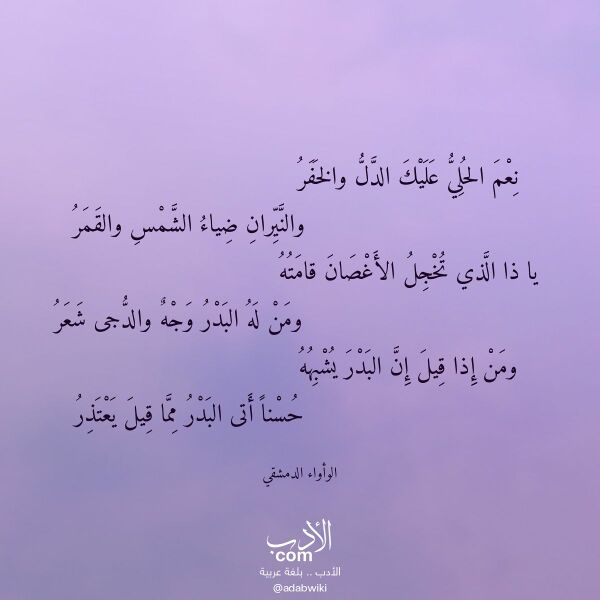 نِعْمَ الحُلِيُّ عَلَيْكَ الدَّلُّ والخَفَرُ
والنَّيِّرانِ ضِياءُ الشَّمْسِ والقَمَرُ
يا ذا الَّذي تُخْجِلُ الأَغْصَانَ قامَتُهُ
ومَنْ لَهُ البَدْرُ وَجْهٌ والدُّجى شَعَرُ
ومَنْ إِذا قِيلَ إِنَّ البَدْرَ يُشْبِهُهُ
حُسْناً أَتى البَدْرُ مِمَّا قِيلَ يَعْتَذِرُ
الوأواء الدمشقي
الأدب
.com
الأدب .. بلغة عربية
@adabwiki